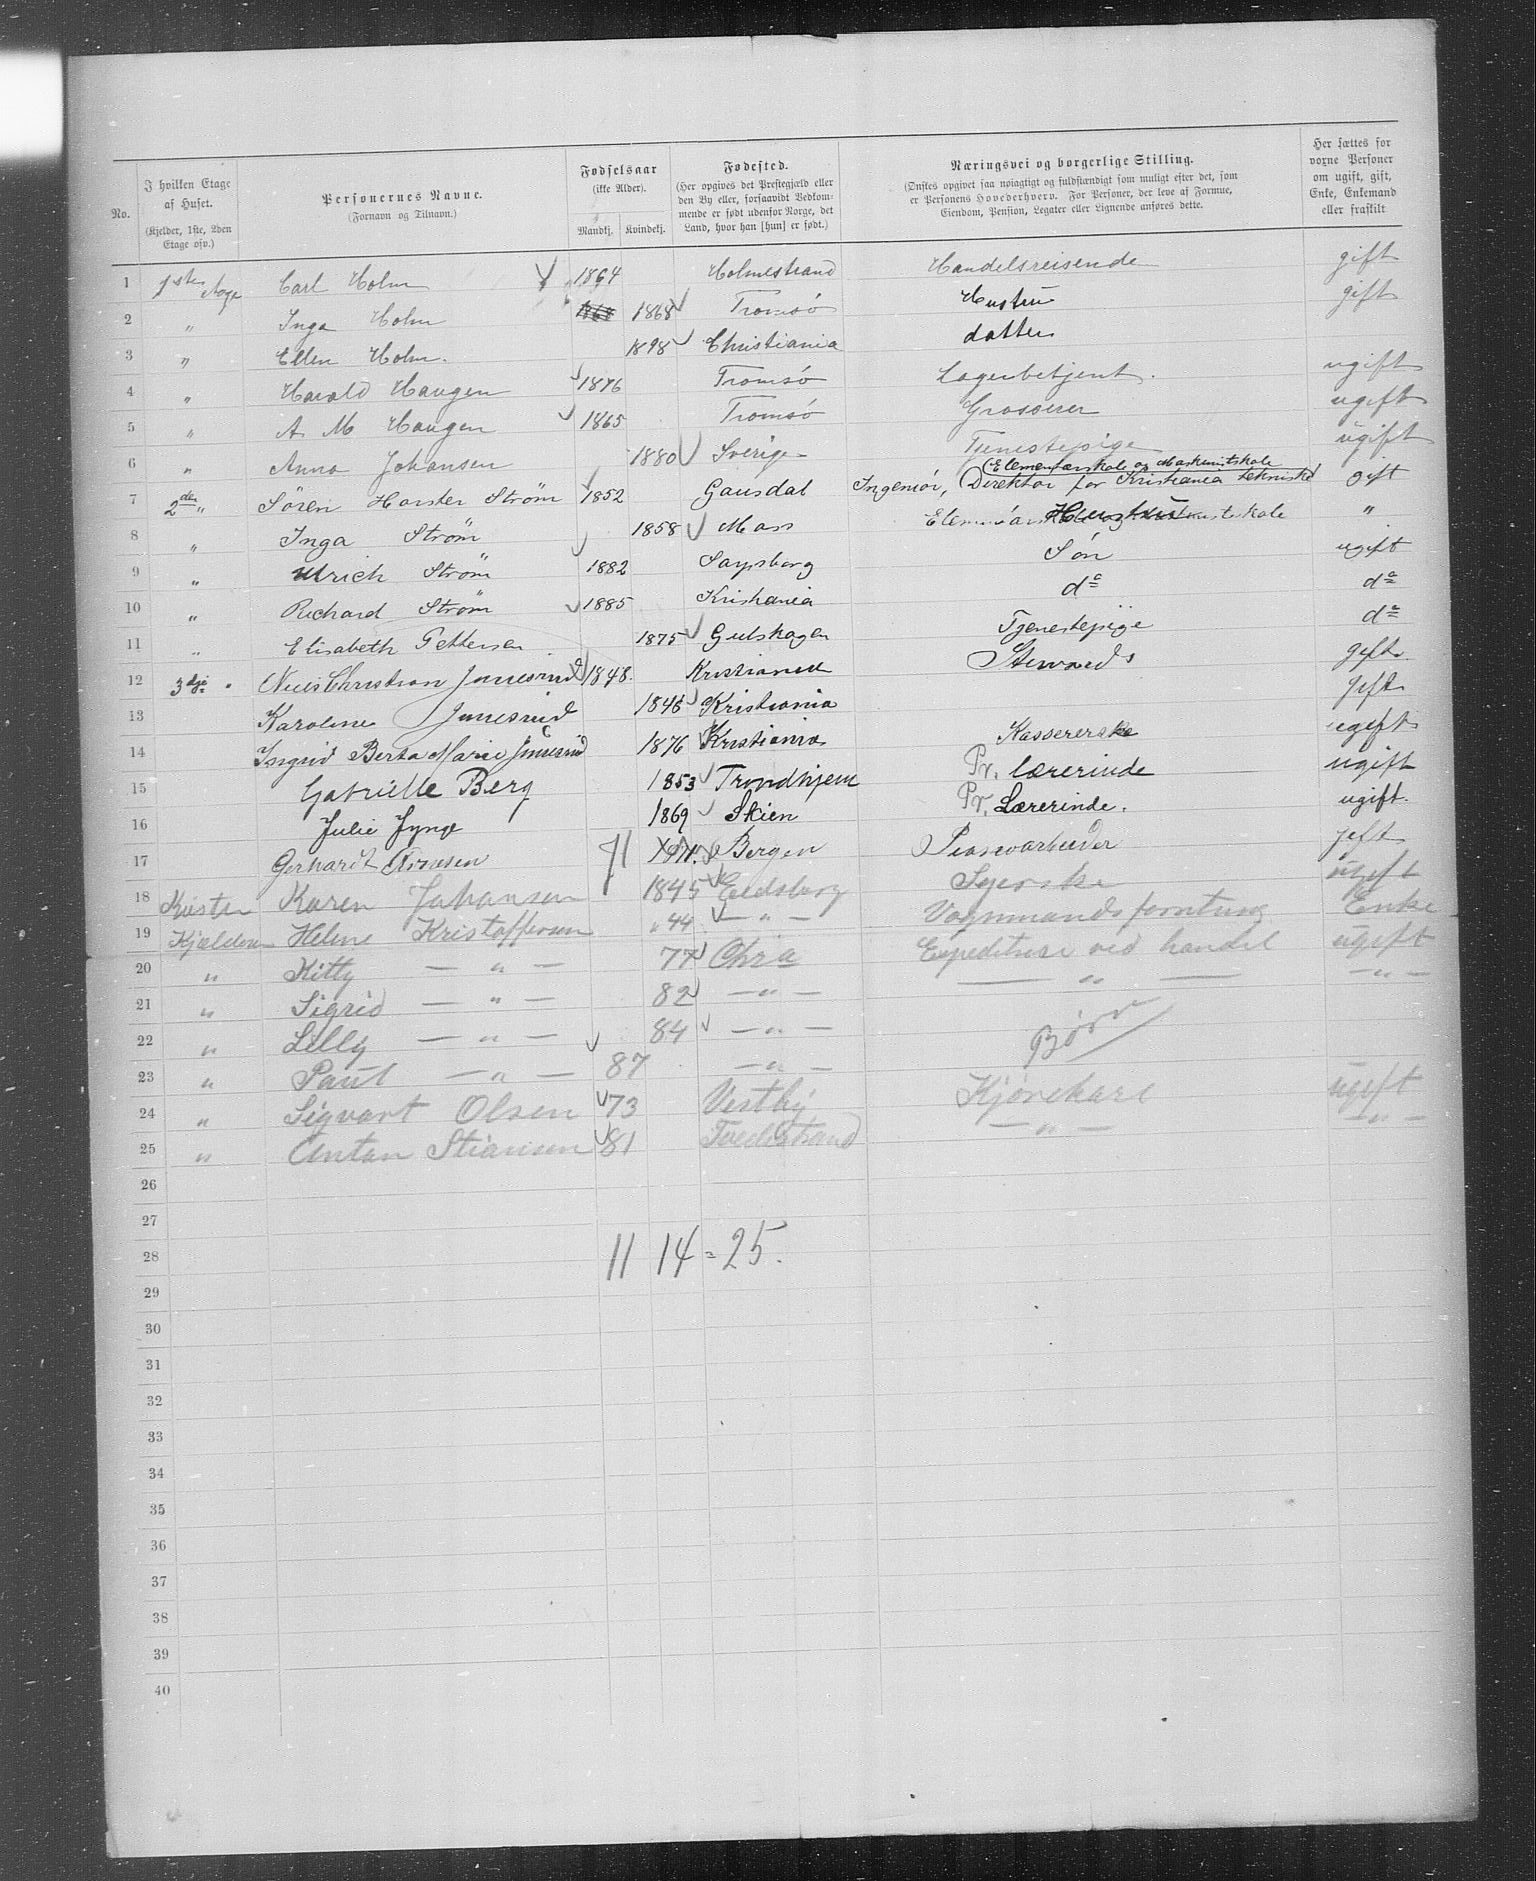 No. | I hvilken Etage af Huset. (Kjelder, 1ste, 2den Etage osv.) | Personernes Navne. (Fornavn og Tilnavn.) | Fødselsaar (ikke Alder). Mandkj. | Kvindekj. | Fødested. (Her opgives det Præstegjæld eller den By eller, forsaavidt Vedkommende er født udenfor Norge, det Land, hvor han [hun] er født.) | Næringsvei og borgerlige Stilling. (Ønskes opgivet saa nøiagtigt og fuldstændigt som muligt efter det, som er Personens Hovederhverv. For Personer, der leve af Formue, Eiendom, Pension, Legater eller Lignende anføres dette. | Her sættes for voxne Personer om ugift, gift, Enke, Enkemand eller fraskilt
1 1ste Etage Carl Holm 1864 Holmestrand Handelsreisende gift
2 " Inga Holm 1868 1868 Tromsø Hustru gift
3 " Ellen Holm. 1898 Christiania datter
4 " Harald Haugen 1876 Tromsø Lagerbetjent. ugift
5 " A M Haugen 1865 Tromsö Grosserer ugift
6 " Anna Johansen 1880 Sverige Tjenestepige ugift
Elementærskole og Maskinistskole
7 2den " Sören Harster Ström 1852 Gausdal Ingeniör, Direktör for Kristiania tekniske gift
8 " Inga Ström 1858 Moss Hustru "
9 " Ulrich Ström 1882 Sarpsborg Sön ugift
10 " Richard Ström 1885 Kristiania do do
11 " Elisabeth Pettersen 1875 Gulskogen Tjenestepige do
12 3dje " Niels Christian 1848. Kristiania Stewards gift
13 Karoline 1846 Kristiania gift
14 Ingrid Berta Marie 1876 Kristiania Kassererske ugift
15 Gabrielle Berg 1853 Trondhjem Pr. Lærerinde ugift
16 Julie Jynge 1869 Skien Pr. Lærerinde. ugift.
17 Gerhardt 71 Bergen Pianoarbeider gift
18 Karen Johansen 1845 Eidsberg Syerske ugift
19 Kjælderen Helene Kristoffersen " 44 — " — Vognmandsforretning Enke
20 " Kitty — " — 77 Chra Expeditrise ved handel ugift
21 " Sigrid — " — 82 — " — — " — — " —
22 " Lilly — " — 84 — " — Børn
23 " Paul — " — 87 — " —
24 " Sigvart Olsen 73 Vestby Kjørekarl ugift
25 " Anton Stiansen 81 Tvedestrand — " — — " —
26
27
28 11 14 = 25.
29
30
31
32
33
34
35
36
37
38
39
40